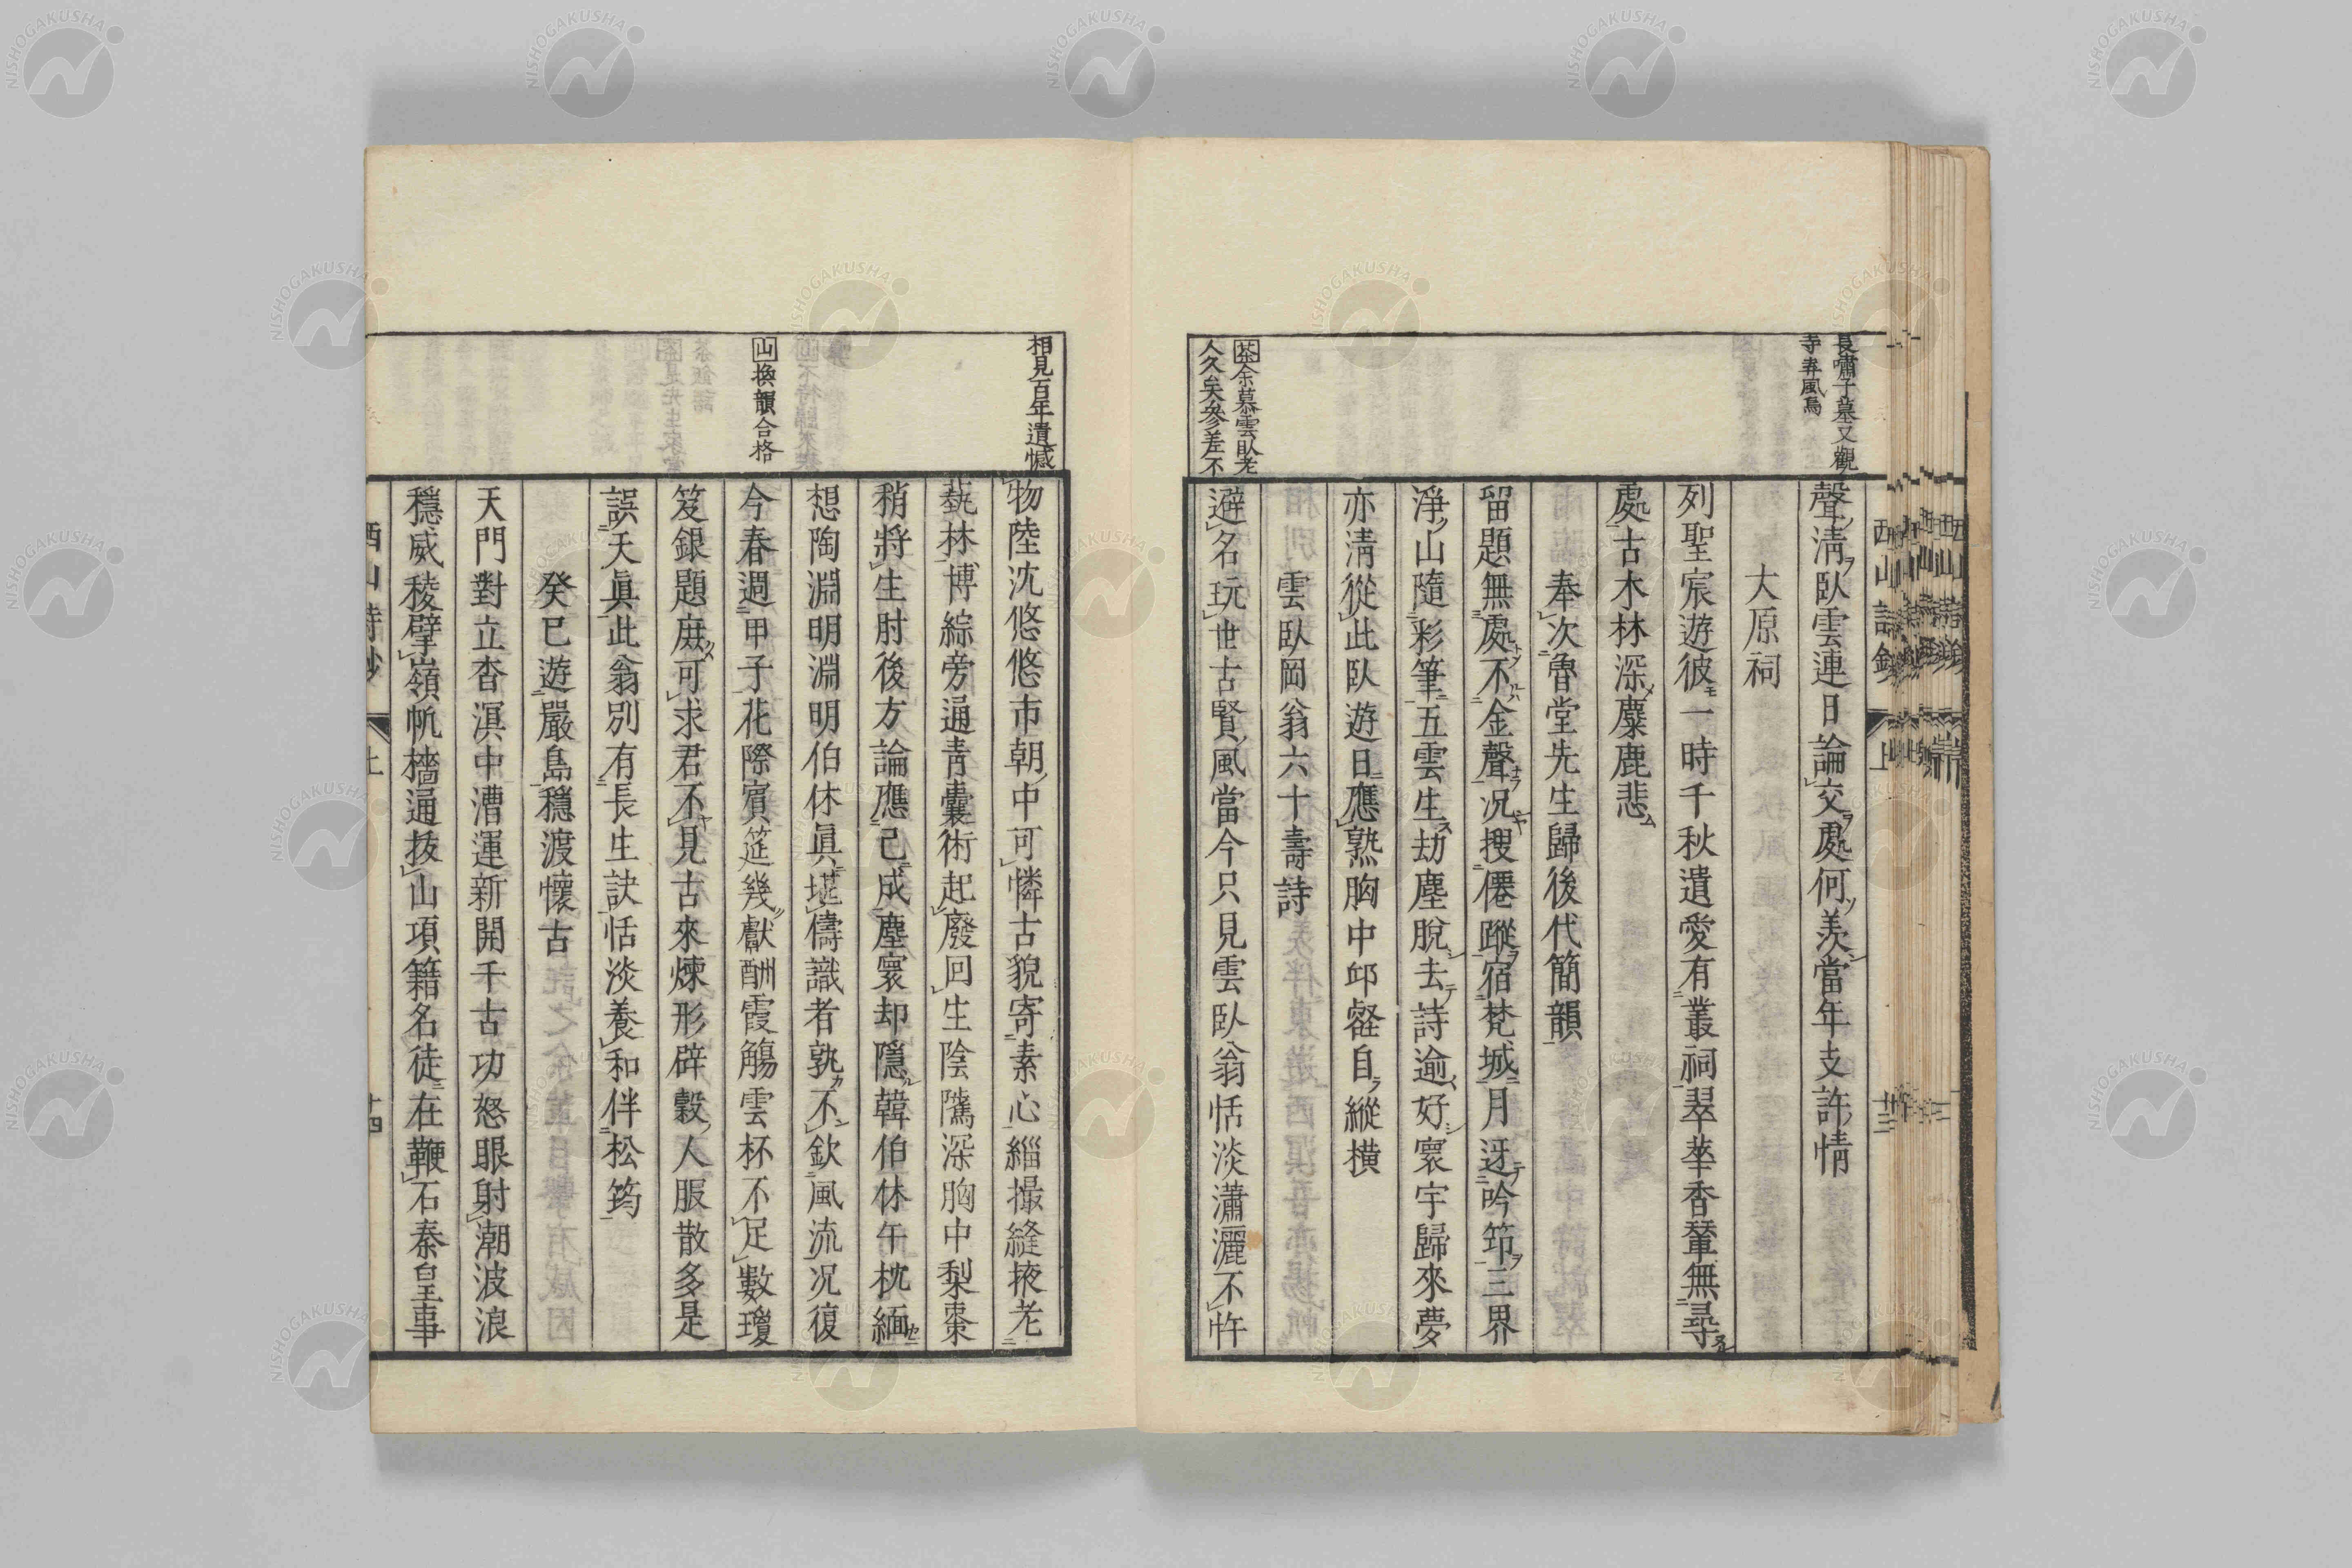 長嘯子墓又觀
寺弆風烏
聲清臥雲連日論交處何羨當年支許情
大原祠
列聖宸遊彼一時千秋遺愛有叢祠翠華香輦無尋
處古木林深麋鹿悲
奉次魯堂先生歸後代簡韻
留題無處不金聲况搜僊蹤宿梵城月迓吟筇三界
淨山隨彩筆五雲生劫塵脫去詩逾好寰宇歸來夢
亦清從此臥遊日應熟胸中邱壑自縱橫
雲臥岡翁六十壽詩
茶余慕雲臥老
人久矣參差不
避名玩世古賢風當今只見雲臥翁恬淡瀟灑不忤
西山詩鈔 上 十三
相見百年遺憾
物陸沈悠悠市朝中可憐古貌寄素心緇撮縫掖老
藝林博綜旁通青囊術起廢回生陰隲深胸中梨棗
稍將生肘後方論應已成塵寰却隱韓伯休午枕緬
想陶淵明淵明伯休眞堪儔識者孰不欽風流况復
山換韻合格
今春週甲子花際賓筵幾獻酬霞觴雲杯不足數瓊
笈銀題庭可求君不見古來煉形辟穀人服散多是
誤天眞此翁別有長生訣恬淡養和伴松筠
癸巳遊嚴島穩渡懷古
天門對立杳溟中漕運新開千古功怒眼射潮波浪
穩威稜擘嶺帆檣通拔山項籍名徒在鞭石秦皇事
西山詩鈔 上 十四
NISHOGAKUSHA